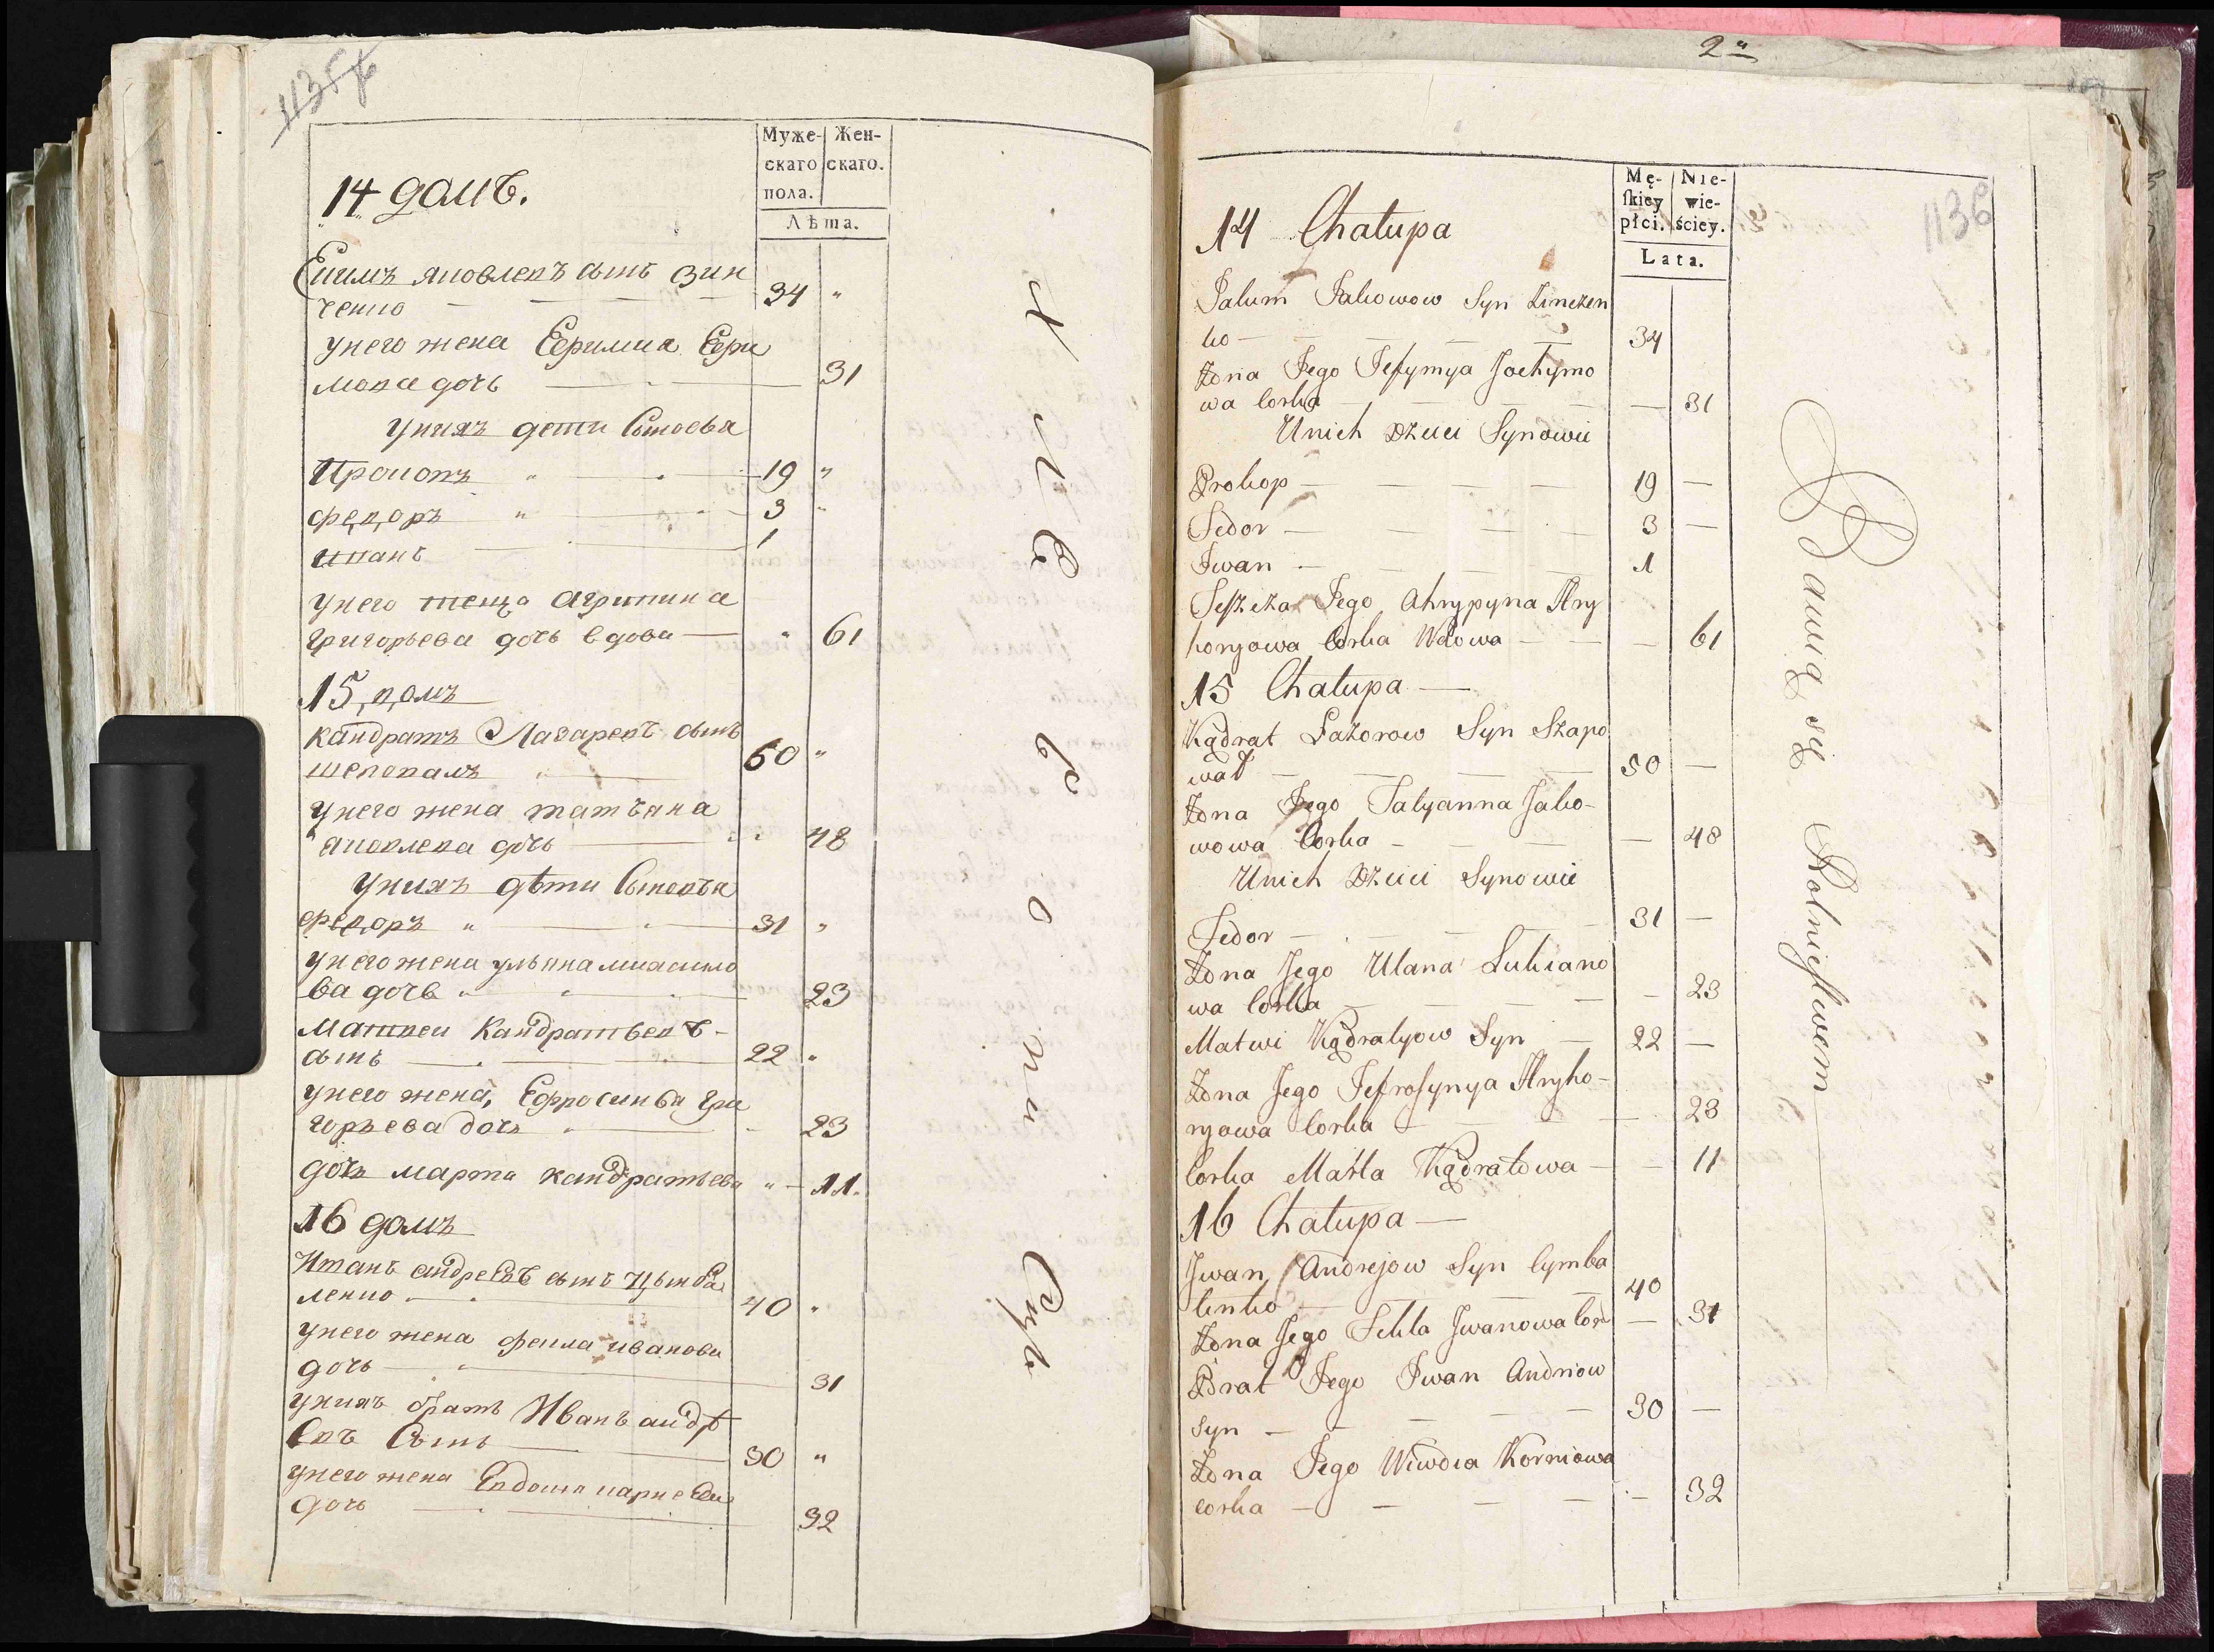 1135
Муже-
скаго
пола.
Жен-
скаго.
Лѣта.
14 домъ.
Екимъ яковлевъ сынъ Зин
ченко 34 "
у него жена Ефимиа Ефи
мова дочь 31
у нихъ дети Сыновья
Прокопъ " 19 "
федоръ " 3 "
иванъ 1
У него теща агрипина
григорьева дочь вдова " 61
15 домъ
кандратъ Лазаревъ сынъ
шеповалъ 50 "
у него жена татъяна
яковлева дочь " " 48
У нихъ дѣти Сыновъя
федоръ " 31 "
у него жена ульяна
ва дочь " 23
Матвеи Кандратьевъ
сынъ 22 "
у него жена, Ефросинья Гри
горьева дочь 23
дочь марта кандратьева " 11.
16 домъ
Иванъ андреевъ сынъ Цымба
ленко 40 "
У него жена фекла иванова
дочь 31
у нихъ братъ Иванъ андр
евъ Сынъ 30 "
у него жена Евдокия карнеева
дочь 32
2я
1136
Mę-
skiey
płci.
Nie-
wie-
ściey.
Lata.
14 Chałupa
Jakum Jakowow Syn Zinczen
ko 34
Żona Jego Jefymya Jochymo
wa Corka 31
U nich Dzieci Synowie
Prokop 19
Fedor 3
Iwan 1
Teszcza Jego Ahrypyna Hry
horyowa Corka Wdowa 61
15 Chałupa
Kądrat Łazorow Syn Szapo
wał 50
Żona Jego Tatyanna Jako-
wowa Corka 48
U nich Dzieci Synowie
Fedor 31
Żona Jego Ulana Lukiano
wa Corka 23
Matwi Kądratyow Syn 22
Żona Jego Jefrosynya Hryho-
ryowa Corka 23
Corka Marta Kądratowa 11
16 Chałupa
Iwan Andrejow Syn Cymba
lenko 40
Żona Jego Fekła Iwanowa Cor 31
Brat Jego Iwan Andriow
Syn 30
Żona Jego Wiwdia Korniowa
corka 32
Bawią się Rolnictwem